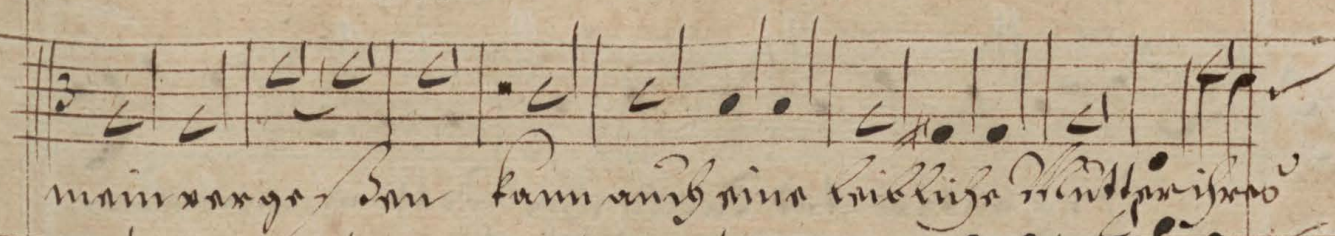 3
mein vergeßen kann auch eine leibliche Mutter ihres